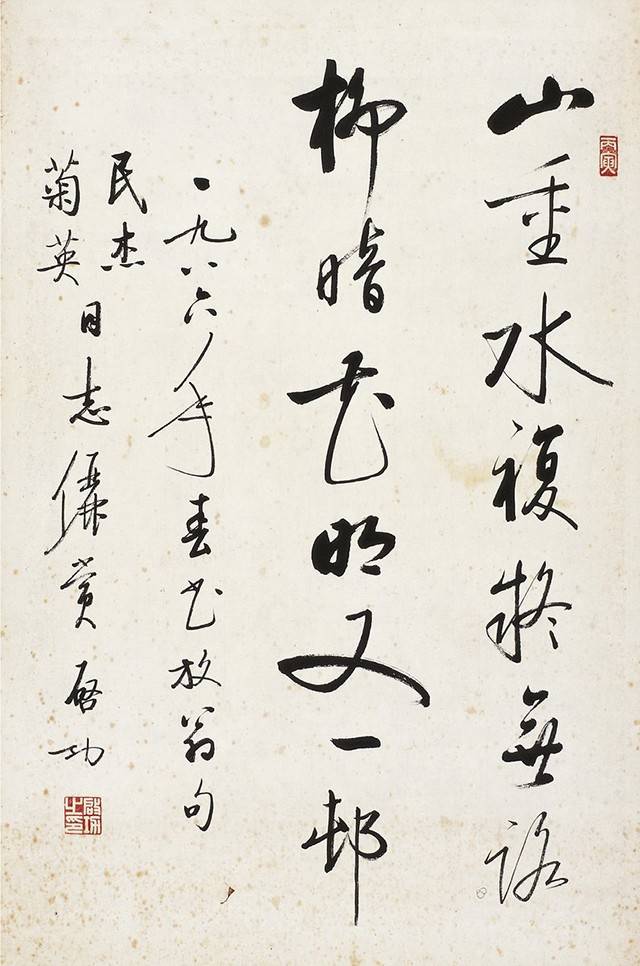 山重水複疑無路
柳暗花明又一邨
一九八六年春书放翁句
民杰
菊英
同志儷赏 启功
丙寅
啟功之印